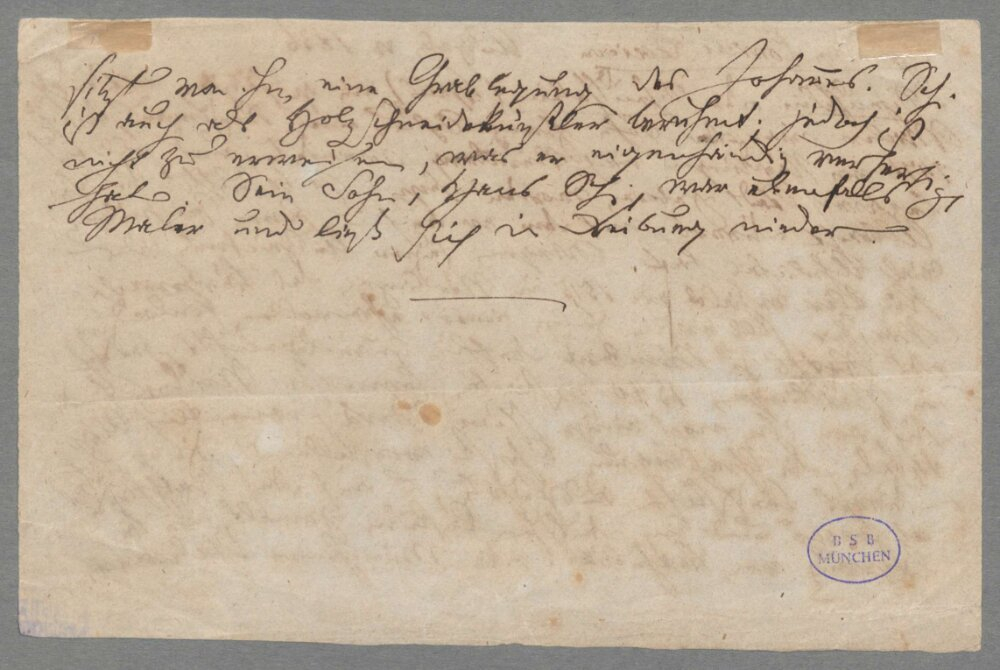 sitzt von ihm eine Grablegung des Johannes. Sch.
ist auch als Holzschneidekünstler berühmt. jedoch ist
nicht zu erweisen, was er eigenhändig verfertigt
hat. Sein Sohn, Hans Sch. war ebenfalls
Maler und ließ sich in Freiburg nieder.
B S B
MÜNCHEN